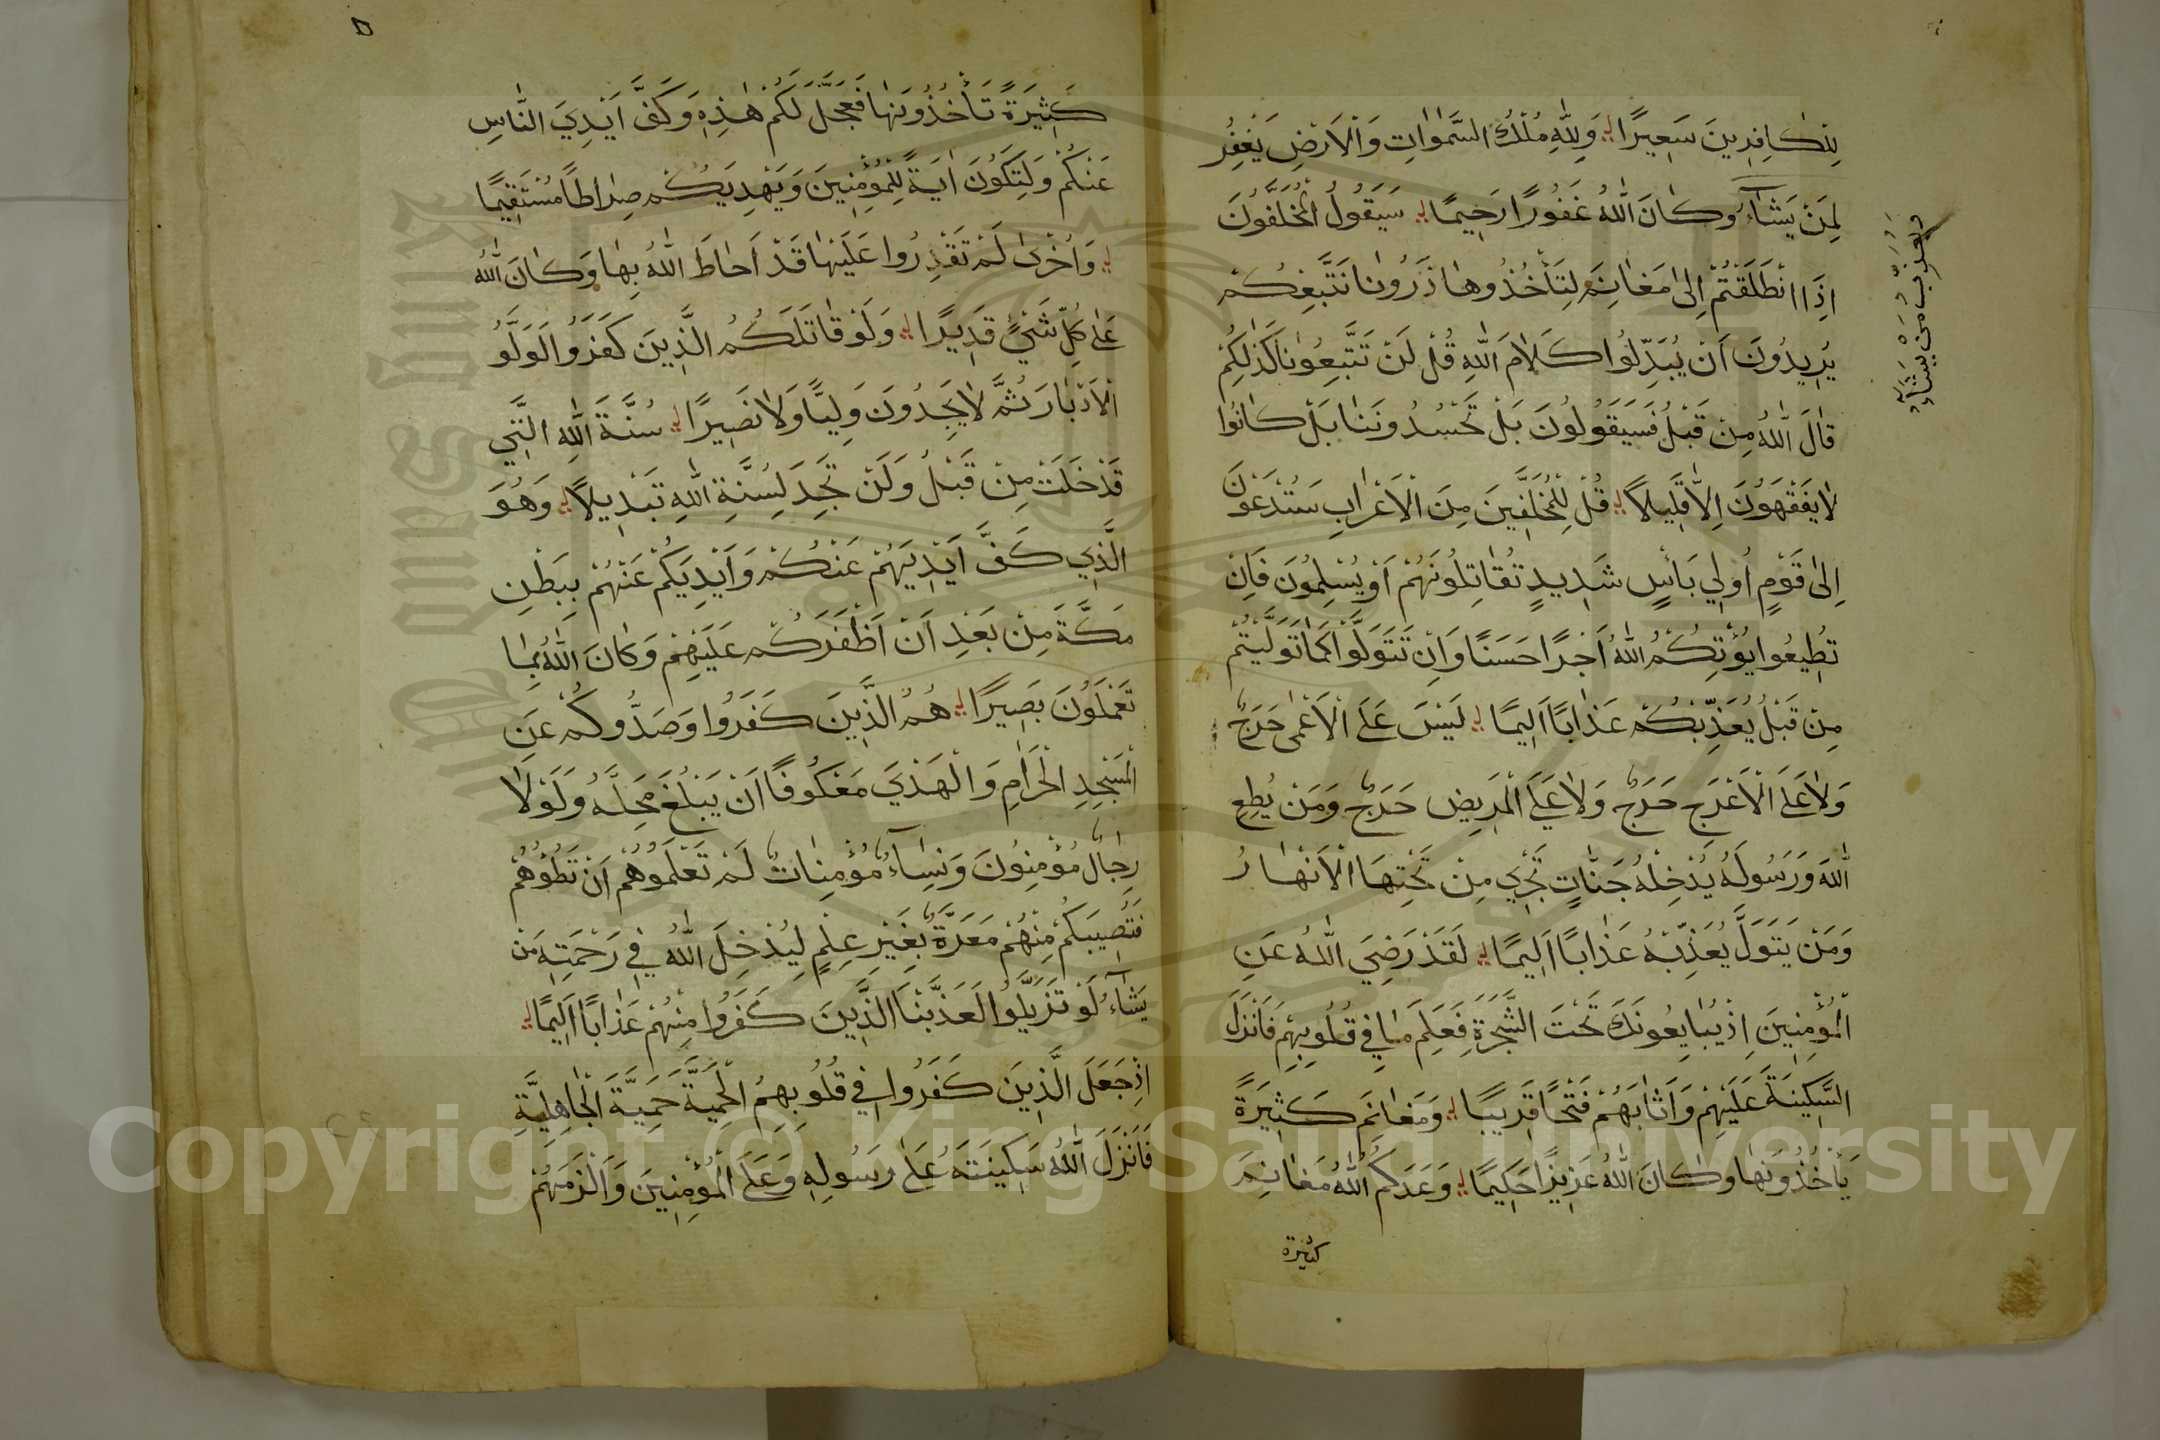 لِلْكَافِرِينَ سَعِيرًا وَلِلّٰهِ مُلْكُ السَّمٰوَاتِ وَالْاَرْضِ يَغْفِرُ
لِمَنْ يَشَآءُ وَكَانَ اللّٰهُ غَفُورًا رَحِيمًا سَيَقُولُ الْمُخَلَّفُونَ
وَيُعَذِّبُ مَنْ يَشَآءُ
اِذَا انْطَلَقْتُمْ اِلٰى مَغَانِمَ لِتَأْخُذُوهَا ذَرُونَا نَتَّبِعْكُمْ
يُرِيدُونَ اَنْ يُبَدِّلُوا كَلَامَ اللّٰهِ قُلْ لَنْ تَتَّبِعُونَا كَذٰلِكُمْ
قَالَ اللّٰهُ مِنْ قَبْلُ فَسَيَقُولُونَ بَلْ تَحْسُدُونَنَا بَلْ كَانُوا
لَا يَفْقَهُونَ اِلَّا قَلِيلًا قُلْ لِلْمُخَلَّفِينَ مِنَ الْاَعْرَابِ سَتُدْعَوْنَ
اِلٰى قَوْمٍ اُولِي بَأْسٍ شَدِيدٍ تُقَاتِلُونَهُمْ اَوْ يُسْلِمُونَ فَاِنْ
تُطِيعُوا يُؤْتِكُمُ اللّٰهُ اَجْرًا حَسَنًا وَاِنْ تَتَوَلَّوْا كَمَا تَوَلَّيْتُمْ
مِنْ قَبْلُ يُعَذِّبْكُمْ عَذَابًا اَلِيمًا لَيْسَ عَلَى الْاَعْمٰى حَرَجٌ
وَلَا عَلَى الْاَعْرَجِ حَرَجٌ وَلَا عَلَى الْمَرِيضِ حَرَجٌ وَمَنْ يُطِعِ
اللّٰهَ وَرَسُولَهُ يُدْخِلْهُ جَنَّاتٍ تَجْرِي مِنْ تَحْتِهَا الْاَنْهَارُ
وَمَنْ يَتَوَلَّ يُعَذِّبْهُ عَذَابًا اَلِيمًا لَقَدْ رَضِيَ اللّٰهُ عَنِ
الْمُؤْمِنِينَ اِذْ يُبَايِعُونَكَ تَحْتَ الشَّجَرَةِ فَعَلِمَ مَا فِي قُلُوبِهِمْ فَاَنْزَلَ
السَّكِينَةَ عَلَيْهِمْ وَاَثَابَهُمْ فَتْحًا قَرِيبًا وَمَغَانِمَ كَثِيرَةً
يَأْخُذُونَهَا وَكَانَ اللّٰهُ عَزِيزًا حَكِيمًا وَعَدَكُمُ اللّٰهُ مَغَانِمَ
كثيرة
كَثِيرَةً تَأْخُذُونَهَا فَعَجَّلَ لَكُمْ هٰذِهِ وَكَفَّ اَيْدِيَ النَّاسِ
عَنْكُمْ وَلِتَكُونَ اٰيَةً لِلْمُؤْمِنِينَ وَيَهْدِيَكُمْ صِرَاطًا مُسْتَقِيمًا
وَاُخْرٰى لَمْ تَقْدِرُوا عَلَيْهَا قَدْ اَحَاطَ اللّٰهُ بِهَا وَكَانَ اللّٰهُ
عَلٰى كُلِّ شَيْءٍ قَدِيرًا وَلَوْ قَاتَلَكُمُ الَّذِينَ كَفَرُوا لَوَلَّوُا
الْاَدْبَارَ ثُمَّ لَا يَجِدُونَ وَلِيًّا وَلَا نَصِيرًا سُنَّةَ اللّٰهِ الَّتِي
قَدْ خَلَتْ مِنْ قَبْلُ وَلَنْ تَجِدَ لِسُنَّةِ اللّٰهِ تَبْدِيلًا وَهُوَ
الَّذِي كَفَّ اَيْدِيَهُمْ عَنْكُمْ وَاَيْدِيَكُمْ عَنْهُمْ بِبَطْنِ
مَكَّةَ مِنْ بَعْدِ اَنْ اَظْفَرَكُمْ عَلَيْهِمْ وَكَانَ اللّٰهُ بِمَا
تَعْمَلُونَ بَصِيرًا هُمُ الَّذِينَ كَفَرُوا وَصَدُّوكُمْ عَنِ
الْمَسْجِدِ الْحَرَامِ وَالْهَدْيَ مَعْكُوفًا اَنْ يَبْلُغَ مَحِلَّهُ وَلَوْلَا
رِجَالٌ مُؤْمِنُونَ وَنِسَآءٌ مُؤْمِنَاتٌ لَمْ تَعْلَمُوهُمْ اَنْ تَطَؤُهُمْ
فَتُصِيبَكُمْ مِنْهُمْ مَعَرَّةٌ بِغَيْرِ عِلْمٍ لِيُدْخِلَ اللّٰهُ فِي رَحْمَتِهِ مَنْ
يَشَآءُ لَوْ تَزَيَّلُوا لَعَذَّبْنَا الَّذِينَ كَفَرُوا مِنْهُمْ عَذَابًا اَلِيمًا
اِذْ جَعَلَ الَّذِينَ كَفَرُوا فِي قُلُوبِهِمُ الْحَمِيَّةَ حَمِيَّةَ الْجَاهِلِيَّةِ
فَاَنْزَلَ اللّٰهُ سَكِينَتَهُ عَلٰى رَسُولِهِ وَعَلَى الْمُؤْمِنِينَ وَاَلْزَمَهُمْ
Copyright © King Saud University